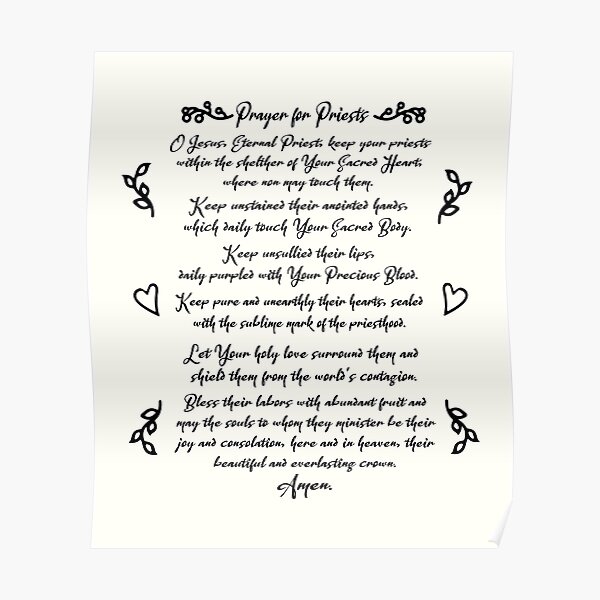 Prayer for Priests
O Jesus, Eternal Priest, keep your priests
within the shelther of Your Sacred Heart,
where non may touch them.
Keep unstained their anointed hands,
which daily touch Your Sacred Body.
Keep unsullied their lips,
daily purpled with Your Precious Blood.
Keep pure and unearthly their hearts, sealed
with the sublime mark of the priesthood.
Let Your holy love surround them and
shield them from the world's contagion.
Bless their labors with abundant fruit and
may the souls to whom they minister be their
joy and consolation, here and in heaven, their
beautiful and everlasting crown.
Amen.